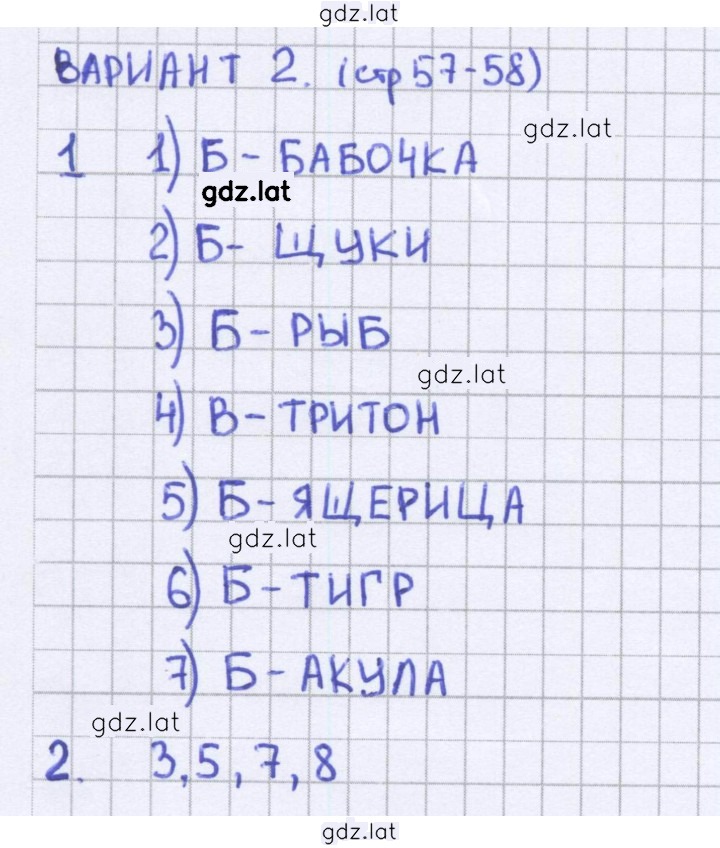 gdz.lat
ВАРИАНТ 2. (стр 57-58)
gdz.lat
1 1) Б - БАБОЧКА
gdz.lat
2) Б- ЩУКИ
3) Б - РЫБ
gdz.lat
4) В - ТРИТОН
5) Б - ЯЩЕРИЦА
gdz.lat
6) Б - ТИГР
7) Б - АКУЛА
gdz.lat
2. 3, 5, 7, 8
gdz.lat